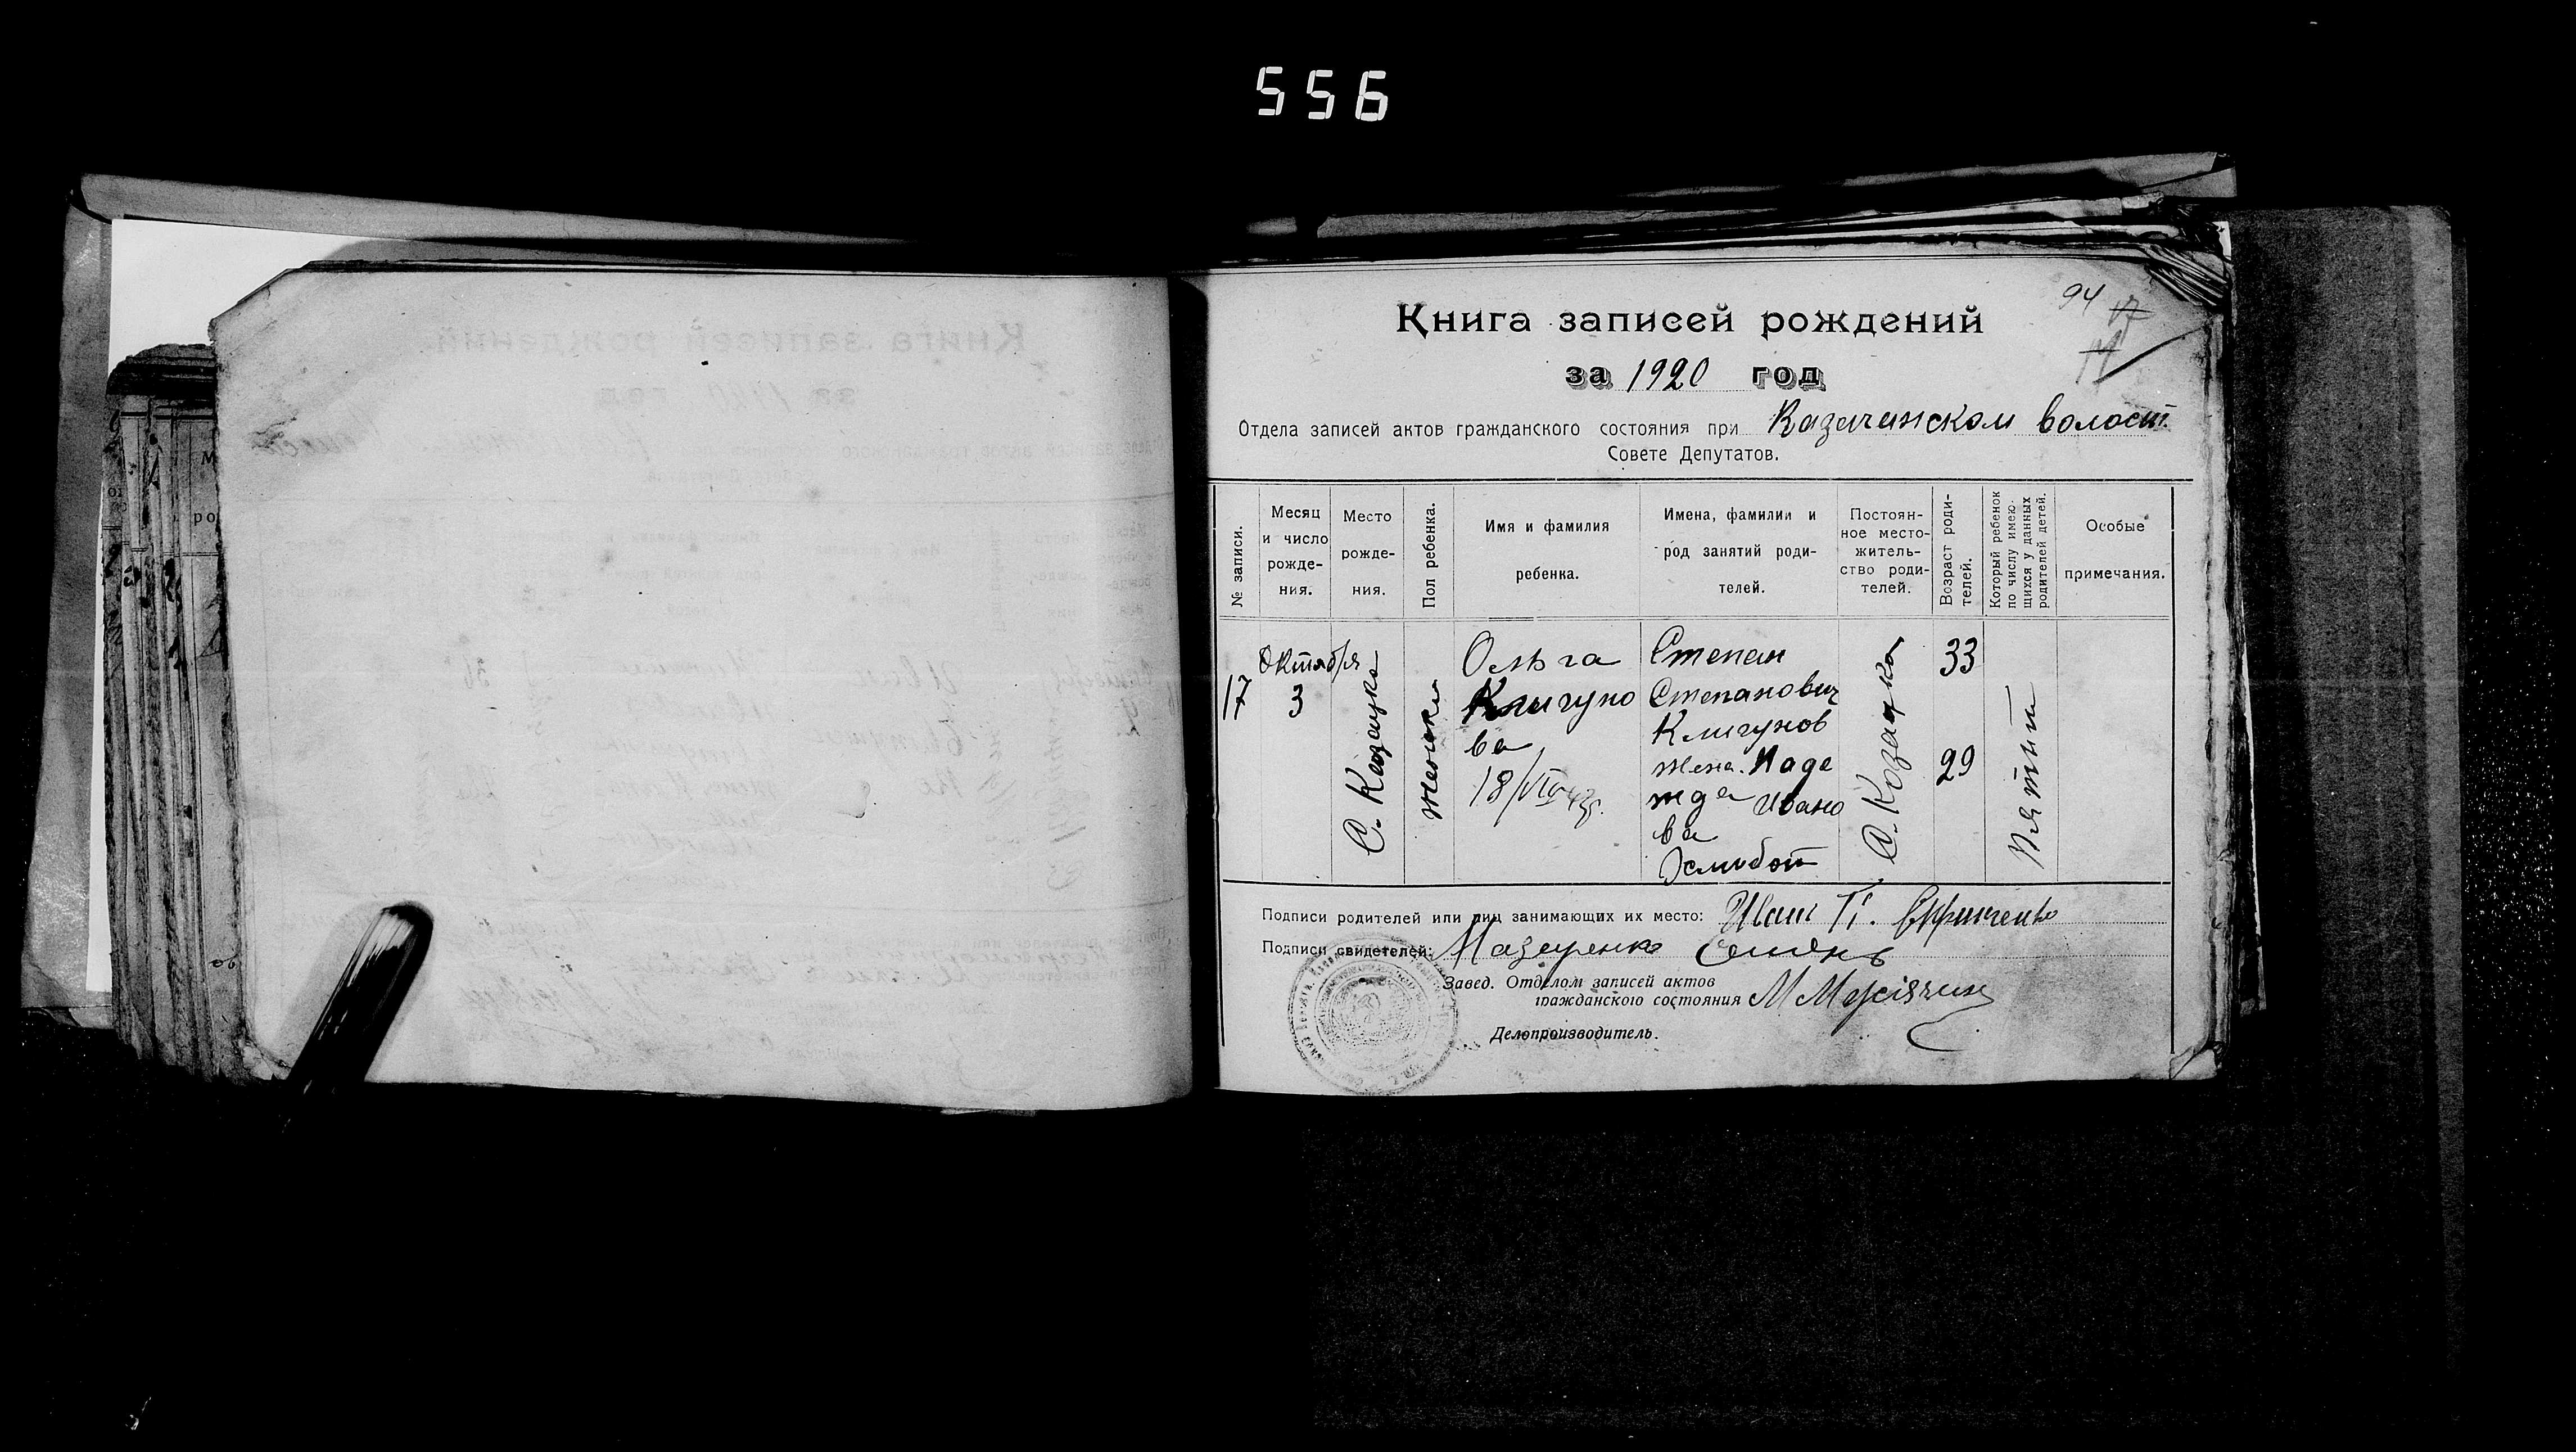 556
94 17
14
Книга записей рождений
за 1920 год
Отдела записей актов гражданского состояния при Казачанском волост.
Совете Депутатов.
№ записи.
Месяц и число рожде-ния.
Место рожде-ния.
Пол ребенка.
Имя и фамилия ребенка.
Имена, фамилии и род занятий роди-телей.
Постоян-ное место-житель-ство роди-телей.
Возраст роди-телей.
Который ребенок по числу имею-щихся у данных родителей детей.
Особые примечания.
17
Октября
3
С. Козацко
женски
Ольга
Клигуно
ва
18/VI 43г.
Степан
Степанович
Клигунов
жена. Наде
жда Ивано
ва
С. Козацко
33
29
Пятит
Подписи родителей или лиц занимающих их место: Иван П.
Подписи свидетелей: Мазуренко Семенъ
Завед. Отделом записей актов
гражданского состояния М
Делопроизводитель.